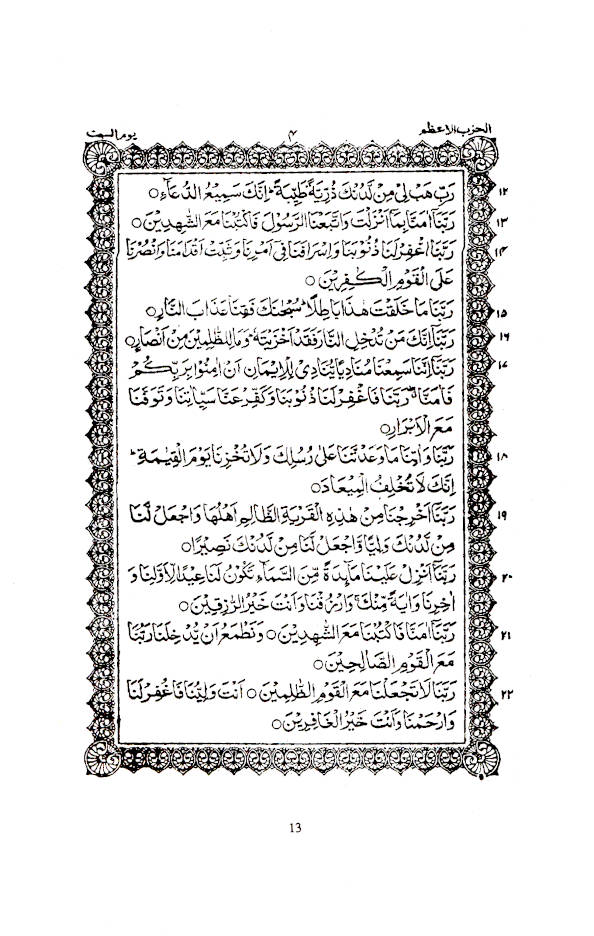 الحزب الاعظم ۴ يوم السبت
۱۲ رَبِّ هَبْ لِيْ مِنْ لَّدُنْكَ ذُرِّيَّةً طَيِّبَةً ۚ اِنَّكَ سَمِيْعُ الدُّعَآءِ ○
۱۳ رَبَّنَآ اٰمَنَّا بِمَآ اَنْزَلْتَ وَاتَّبَعْنَا الرَّسُوْلَ فَاكْتُبْنَا مَعَ الشّٰهِدِيْنَ ○
۱۴ رَبَّنَا اغْفِرْ لَنَا ذُنُوْبَنَا وَاِسْرَافَنَا فِيْٓ اَمْرِنَا وَثَبِّتْ اَقْدَامَنَا وَانْصُرْنَا
عَلَى الْقَوْمِ الْكٰفِرِيْنَ ○
۱۵ رَبَّنَا مَا خَلَقْتَ هٰذَا بَاطِلًا ۚ سُبْحٰنَكَ فَقِنَا عَذَابَ النَّارِ ○
۱۶ رَبَّنَآ اِنَّكَ مَنْ تُدْخِلِ النَّارَ فَقَدْ اَخْزَيْتَهٗ ۚ وَمَا لِلظّٰلِمِيْنَ مِنْ اَنْصَارٍ ○
۱۷ رَبَّنَآ اِنَّنَا سَمِعْنَا مُنَادِيًا يُّنَادِيْ لِلْاِيْمَانِ اَنْ اٰمِنُوْا بِرَبِّكُمْ
فَاٰمَنَّا ۖ رَبَّنَا فَاغْفِرْ لَنَا ذُنُوْبَنَا وَكَفِّرْ عَنَّا سَيِّاٰتِنَا وَتَوَفَّنَا
مَعَ الْاَبْرَارِ ○
۱۸ رَبَّنَا وَاٰتِنَا مَا وَعَدْتَّنَا عَلٰى رُسُلِكَ وَلَا تُخْزِنَا يَوْمَ الْقِيٰمَةِ ۚ
اِنَّكَ لَا تُخْلِفُ الْمِيْعَادَ ○
۱۹ رَبَّنَآ اَخْرِجْنَا مِنْ هٰذِهِ الْقَرْيَةِ الظَّالِمِ اَهْلُهَا وَاجْعَلْ لَّنَا
مِنْ لَّدُنْكَ وَلِيًّا وَّاجْعَلْ لَّنَا مِنْ لَّدُنْكَ نَصِيْرًا ○
۲۰ رَبَّنَآ اَنْزِلْ عَلَيْنَا مَآئِدَةً مِّنَ السَّمَآءِ تَكُوْنُ لَنَا عِيْدًا لِّاَوَّلِنَا وَ
اٰخِرِنَا وَاٰيَةً مِّنْكَ ۚ وَارْزُقْنَا وَاَنْتَ خَيْرُ الرّٰزِقِيْنَ ○
۲۱ رَبَّنَآ اٰمَنَّا فَاكْتُبْنَا مَعَ الشّٰهِدِيْنَ ○ وَنَطْمَعُ اَنْ يُّدْخِلَنَا رَبُّنَا
مَعَ الْقَوْمِ الصَّالِحِيْنَ ○
۲۲ رَبَّنَا لَا تَجْعَلْنَا مَعَ الْقَوْمِ الظّٰلِمِيْنَ ○ اَنْتَ وَلِيُّنَا فَاغْفِرْ لَنَا
وَارْحَمْنَا وَاَنْتَ خَيْرُ الْغَافِرِيْنَ ○
13